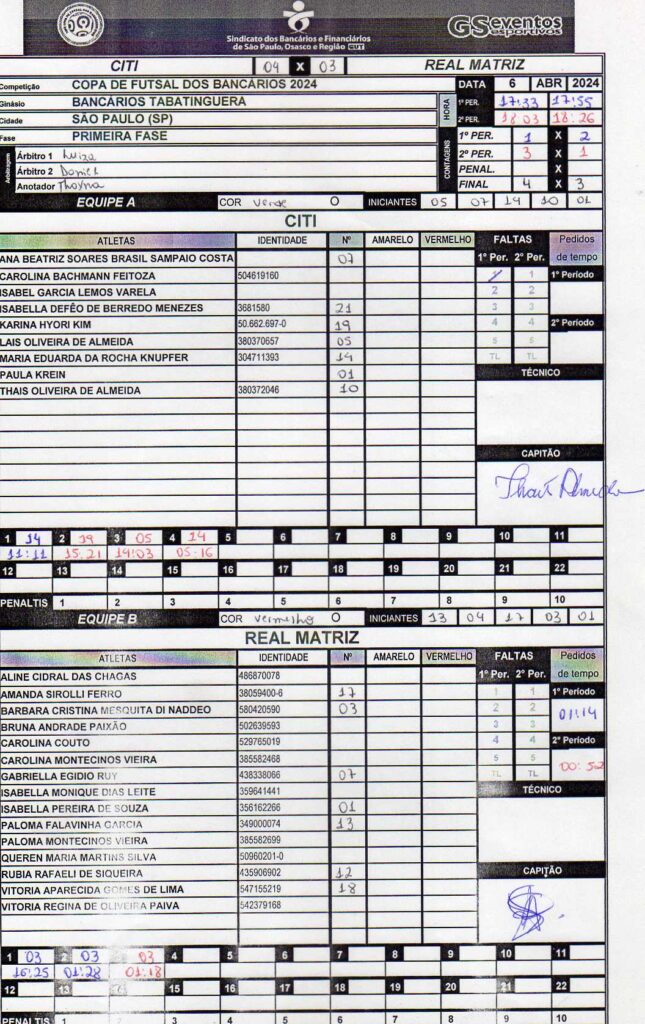 Sindicato dos Bancários e Financiários
de São Paulo, Osasco e Região CUT
GSeventos
esportivos
CITI 04 X 03 REAL MATRIZ
Competição COPA DE FUTSAL DOS BANCÁRIOS 2024 DATA 6 ABR 2024
Ginásio BANCÁRIOS TABATINGUERA HORA 1º PER. 17:33 17:55
Cidade SÃO PAULO (SP) 2º PER. 18:03 18:26
Fase PRIMEIRA FASE CONTAGENS 1º PER. 1 X 2
Arbitragem Árbitro 1 Luiza 2º PER. 3 X 1
Árbitro 2 Daniel PENAL. X
Anotador Thayna FINAL 4 X 3
EQUIPE A COR verde O INICIANTES 05 07 14 10 01
CITI
ATLETAS IDENTIDADE Nº AMARELO VERMELHO FALTAS Pedidos
ANA BEATRIZ SOARES BRASIL SAMPAIO COSTA 07 1º Per. 2º Per. de tempo
CAROLINA BACHMANN FEITOZA 504619160 1 1 1º Período
ISABEL GARCIA LEMOS VARELA 2 2
ISABELLA DEFÊO DE BERREDO MENEZES 3681580 21 3 3
KARINA HYORI KIM 50.662.697-0 19 4 4 2º Período
LAIS OLIVEIRA DE ALMEIDA 380370657 05 5 5
MARIA EDUARDA DA ROCHA KNUPFER 304711393 14 TL TL
PAULA KREIN 01 TÉCNICO
THAIS OLIVEIRA DE ALMEIDA 380372046 10
CAPITÃO
Thais Almeida
1 14 2 19 3 05 4 14 5 6 7 8 9 10 11
11:11 15:21 14:03 05:16
12 13 14 15 16 17 18 19 20 21 22
PENALTIS 1 2 3 4 5 6 7 8 9 10
EQUIPE B COR vermelho O INICIANTES 13 04 17 03 01
REAL MATRIZ
ATLETAS IDENTIDADE Nº AMARELO VERMELHO FALTAS Pedidos
ALINE CIDRAL DAS CHAGAS 486870078 1º Per. 2º Per. de tempo
AMANDA SIROLLI FERRO 38059400-6 17 1 1 1º Período
BARBARA CRISTINA MESQUITA DI NADDEO 580420590 03 2 2 01:14
BRUNA ANDRADE PAIXÃO 502639593 3 3
CAROLINA COUTO 529765019 4 4 2º Período
CAROLINA MONTECINOS VIEIRA 385582468 5 5 00:52
GABRIELLA EGIDIO RUY 438338066 07 TL TL
ISABELLA MONIQUE DIAS LEITE 359641441 TÉCNICO
ISABELLA PEREIRA DE SOUZA 356162266 01
PALOMA FALAVINHA GARCIA 349000074 13
PALOMA MONTECINOS VIEIRA 385582699
QUEREN MARIA MARTINS SILVA 50960201-0
RUBIA RAFAELI DE SIQUEIRA 435906902 12 CAPITÃO
VITORIA APARECIDA GOMES DE LIMA 547155219 18
VITORIA REGINA DE OLIVEIRA PAIVA 542379168
1 03 2 03 3 03 4 5 6 7 8 9 10 11
16:25 01:28 01:18
12 13 14 15 16 17 18 19 20 21 22
PENALTIS 1 2 3 4 5 6 7 8 9 10